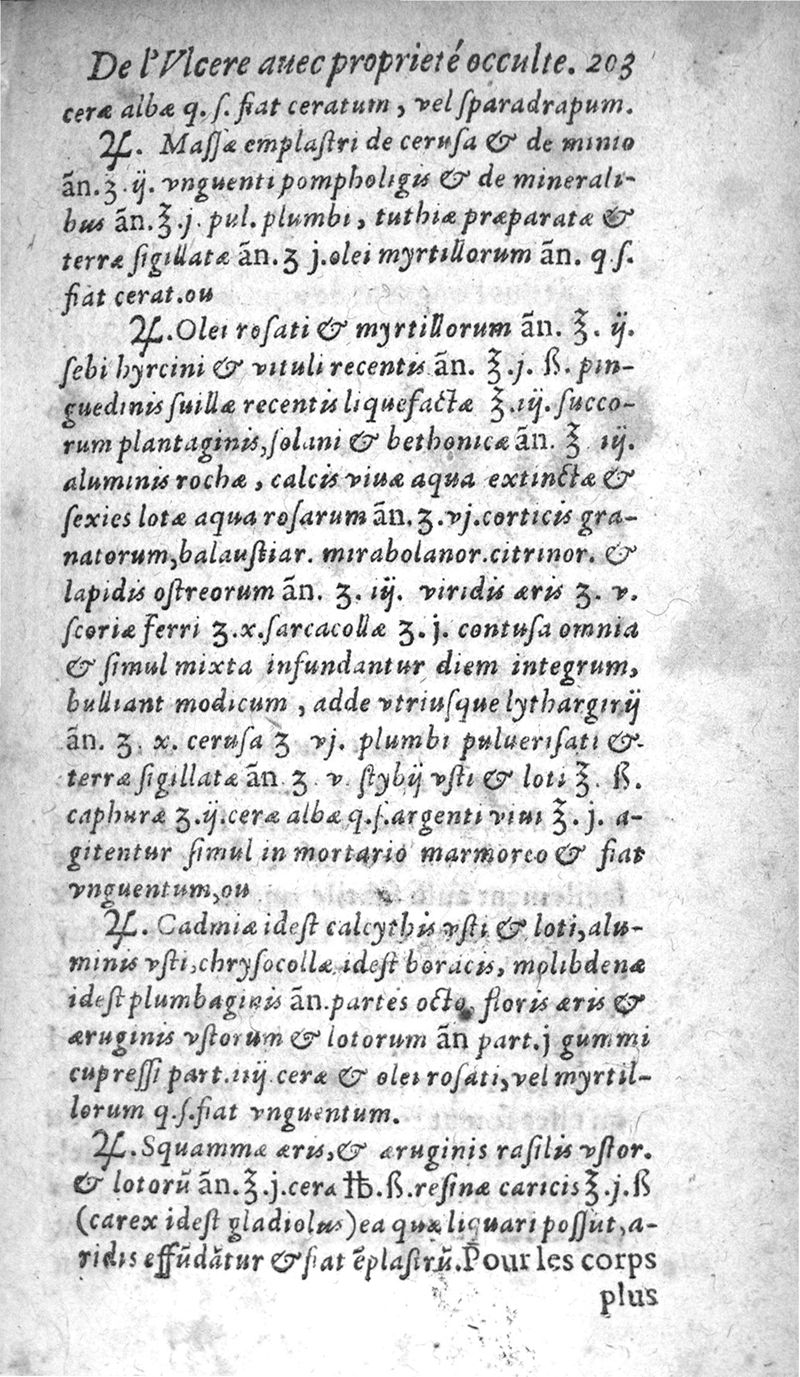 De l'Vlcere auec proprieté occulte. 203
ceræ albæ q. ſ. fiat ceratum, vel ſparadrapum.
♃. Maſſæ emplaſtri de ceruſa & de minio
ãn.ʒ.ij. vnguenti pompholigis & de minerali-
bus ãn.℥.j. pul. plumbi, tuthiæ præparatæ &
terræ ſigillatæ ãn. ʒ j.olei myrtillorum ãn. q ſ.
fiat cerat.ou
♃.Olei roſati & myrtillorum ãn. ℥. ij.
ſebi hyrcini & vituli recentis ãn. ℥.j. ß. pin-
guedinis ſuillæ recentis liquefactæ ℥.iij. ſucco-
rum plantaginis,ſolani & bethonicæ ãn. ℥ iij.
aluminis rochæ, calcis viuæ aqua extinctæ &
ſexies lotæ aqua roſarum ãn. ʒ.vj.corticis gra-
natorum,balauſtiar. mirabolanor.citrinor. &
lapidis oſtreorum ãn. ʒ. iij. viridis æris ʒ. v.
ſcoriæ ferri ʒ.x.ſarcacollæ ʒ. j. contuſa omnia
& ſimul mixta infundantur diem integrum,
bulliant modicum, adde vtriuſque lythargirij
ãn. ʒ. x. ceruſa ʒ vj. plumbi pulueriſati &
terræ ſigillatæ ãn. ʒ. v. ſtybij vſti & loti ℥. ß.
caphuræ ʒ.ij.ceræ albæ q.ſ.argenti viui ℥. j. a-
gitentur ſimul in mortario marmoreo & fiat
vnguentum,ou
♃. Cadmiæ ideſt calcythis vſti & loti,alu-
minis vſti,chryſocollæ ideſt boracis, molibdenæ
ideſt plumbaginis ãn.partes octo, floris æris &
æruginis vſtorum & lotorum ãn part.j gummi
cupreſſi part.iiij ceræ & olei roſati,vel myrtil-
lorum q.ſ.fiat vnguentum.
♃. Squammæ æris,& æruginis raſilis vſtor.
& lotorũ ãn.℥.j.cera ℔.ß.reſinæ caricis ℥.j.ß
(carex ideſt gladiolus)ea quæ liquari poſſũt,a-
ridis effũdãtur & fiat ẽplaſtrũ.Pour les corps
plus